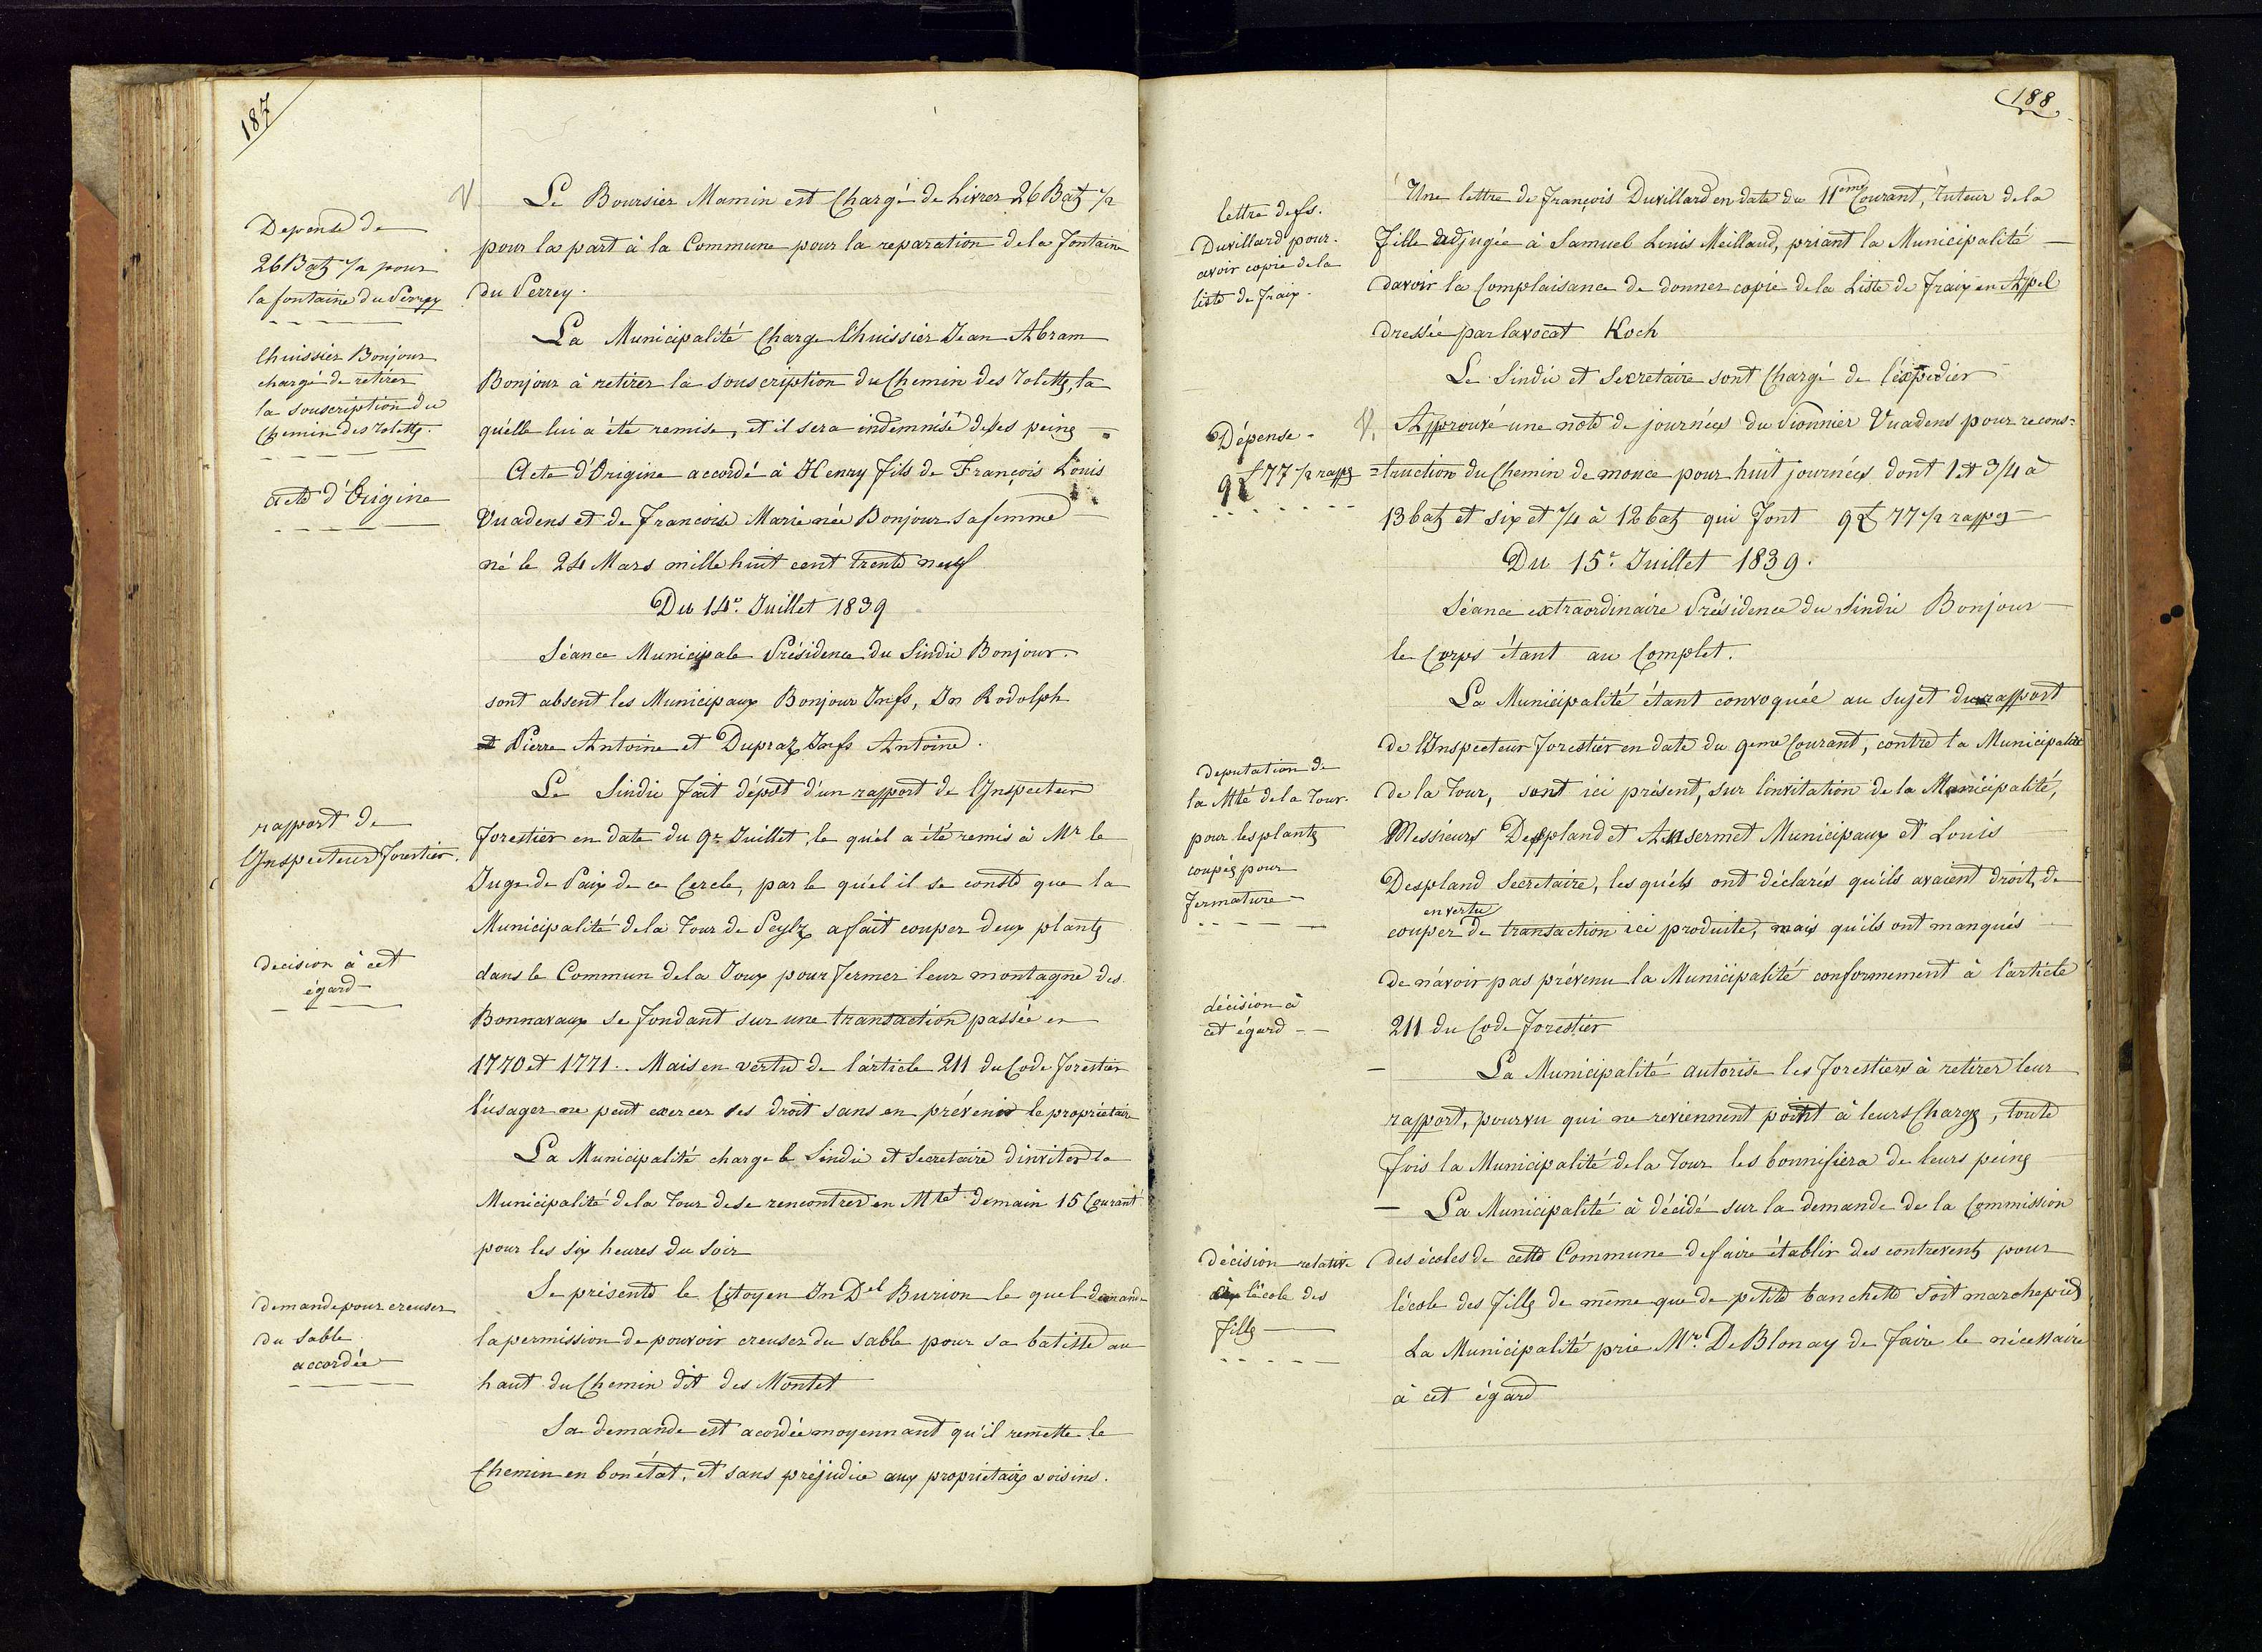 187
Depense de
26 Batz 1/2 pour
la fontaine du Perrey
V Le Boursier Mamin est Chargé de Livrer 26 Batz 1/2
pour la part à la Commune pour la reparation de la fontaine
du Perrey.
lhuissier Bonjour
chargé de retirer
la souscription du
Chemin des Toletts.
La Municipalité Charge l'huissier Jean Abram
Bonjour à retirer la souscription du Chemin des Toletts, la
qu'elle lui a été remise, et il sera indemnisé de ses peines
acte d'Origine
Acte d'Origine accordé à Henry fils de François Louis
Vuadens et de Francoise Marie née Bonjour sa femme
né le 24 Mars mille huit cent trente neuf
Du 14e. Juillet 1839
Séance Municipale Présidence du Sindic Bonjour.
sont absent les Municipaux Bonjour Jnfs, Jn Rodolph
et Pierre Antoine et Dupraz Jnfs Antoine.
rapport de
l'Inspecteur Forestier.
Le Sindic fait dépôt d'un rapport de l'Inspecteur
forestier en date du 9e. Juillet, le qu'el a été remis à Mr le
Juge de Paix de ce Cercle, par le qu'el il se conste que la
Municipalité de la Tour de Peylz a fait couper deux plants
decision à cet
égard
dans le Commun de la Joux pour fermer leur montagne des
Bonnavaux se fondant sur une transaction passée en
1770 et 1771.. Mais en vertu de l'article 211 du Code forestier
l'usager ne peut exercer ses droit sans en prévenir le propriétaire
La Municipalité charge le Sindic et Secretaire d'inviter la
Municipalité de la Tour de se rencontrer en Mté demain 15 Courant
pour les six heures du Soir
demande pour creuser
du Sable
accordée
Se présente le Citoyen Jn Del Burion le quel demande
la permission de pouvoir creuser du sable pour sa batisse au
haut du Chemin dit des Montet
Sa demande est acordée moyennant qu'il remette le
Chemin en bon état, et sans préjudice aux proprietaix voisins.
188
lettre de fs.
Duvillard pour
avoir copie de la
liste de fraix.
Une lettre de François Duvillard en date du 11ème Courant, Tuteur de la
fille adjugée à Samuel Louis Meilland, priant la Municipalité
davoir la Complaisance de donner copie de la Liste de fraix en Appel
dressée par lavocat Koch
Le Sindic et Secretaire sont Chargé de l'éxpedier
Dépense
9 £ 77 1/2 rapps
V. Approuvé une note de journées du Pionnier Vuadens pour recons=
=truction du Chemin de monce pour huit journées dont 1 et 3/4 à
13 batz et six et 1/4 à 12 batz qui font 9 £ 77 1/2 rapps
Du 15e. Juillet 1839.
Séance extraordinaire Présidence du Sindic Bonjour
le Corps étant au Complet.
La Municipalité étant convoquée au sujet du rapport
de l'Inspecteur forestier en date du 9eme Courant, contre la Municipalité
deputation de
la Mté de la Tour.
pour les plants
coupés pour
fermature
de la Tour, sont ici présent, sur l'invitation de la Municipalité,
Messieurs Despland et Ansermet Municipaux et Louis
Despland Secretaire, les qu'els ont déclarés qu'ils avaient droit, de
en vertu
couper de transaction ici produite, mais qu'ils ont manqués
de n'avoir pas prévenu la Municipalité conformement à l'article
211 du Code Forestier
décision à
cet égard
La Municipalité autorise les forestiers à retirer leur
rapport, pourvu qui ne reviennent point à leurs Charges, toute
fois la Municipalité de la Tour les bonnifiera de leurs peines
décision relative
à l'école des
filles
La Municipalité à décidé sur la demande de la Commission
des écoles de cette Commune de faire établir des contrevents pour
l'école des filles de même que de petite banchette soit marchepied
La Municipalité prie Mr. De Blonay de faire le nécessaire
à cet égard